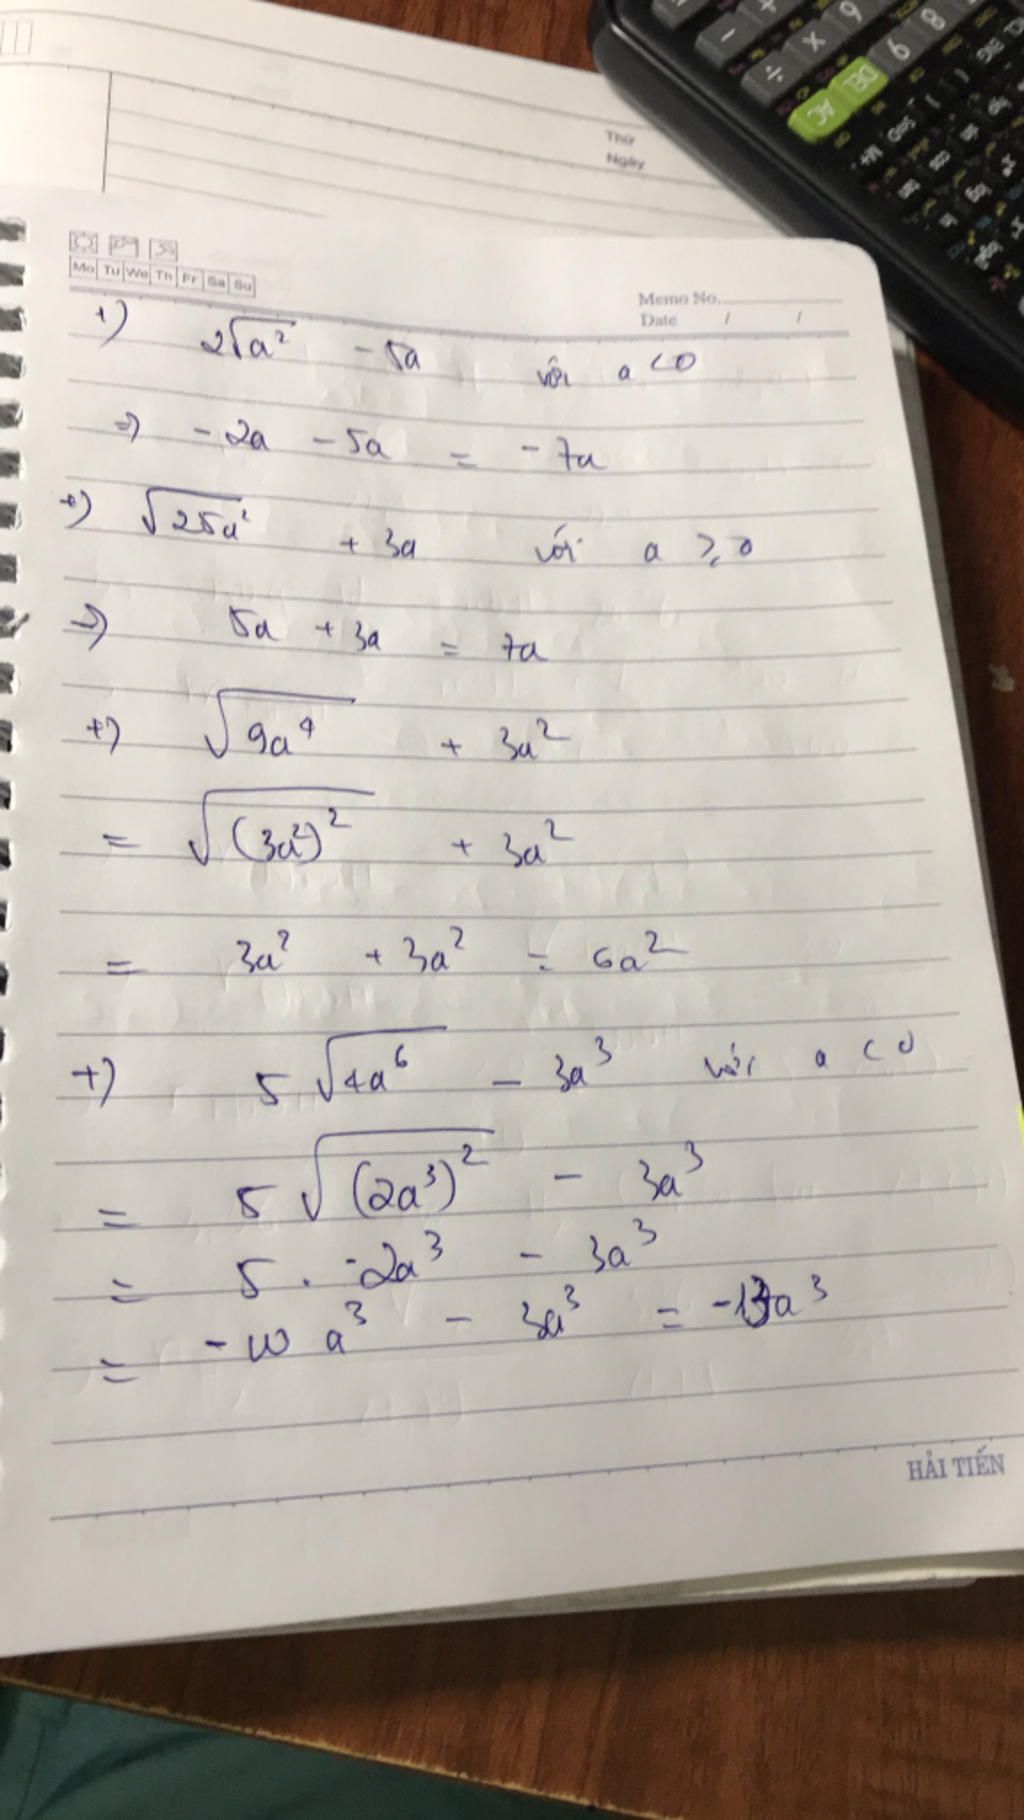 Thứ
Ngày
Mo Tu We Th Fr Sa Su
Memo No.
Date / /
+) 2√a² - 5a với a < 0
=> - 2a - 5a = - 7a
+) √25a² + 3a với a ≥ 0
=> 5a + 3a = 7a
+) √9a⁴ + 3a²
= √(3a²)² + 3a²
= 3a² + 3a² = 6a²
+) 5 √4a⁶ - 3a³ với a < 0
= 5 √(2a³)² - 3a³
= 5 . -2a³ - 3a³
= - 10 a³ - 3a³ = -13a³
HẢI TIẾN
AC DEL
÷ × 9
- + 6 8